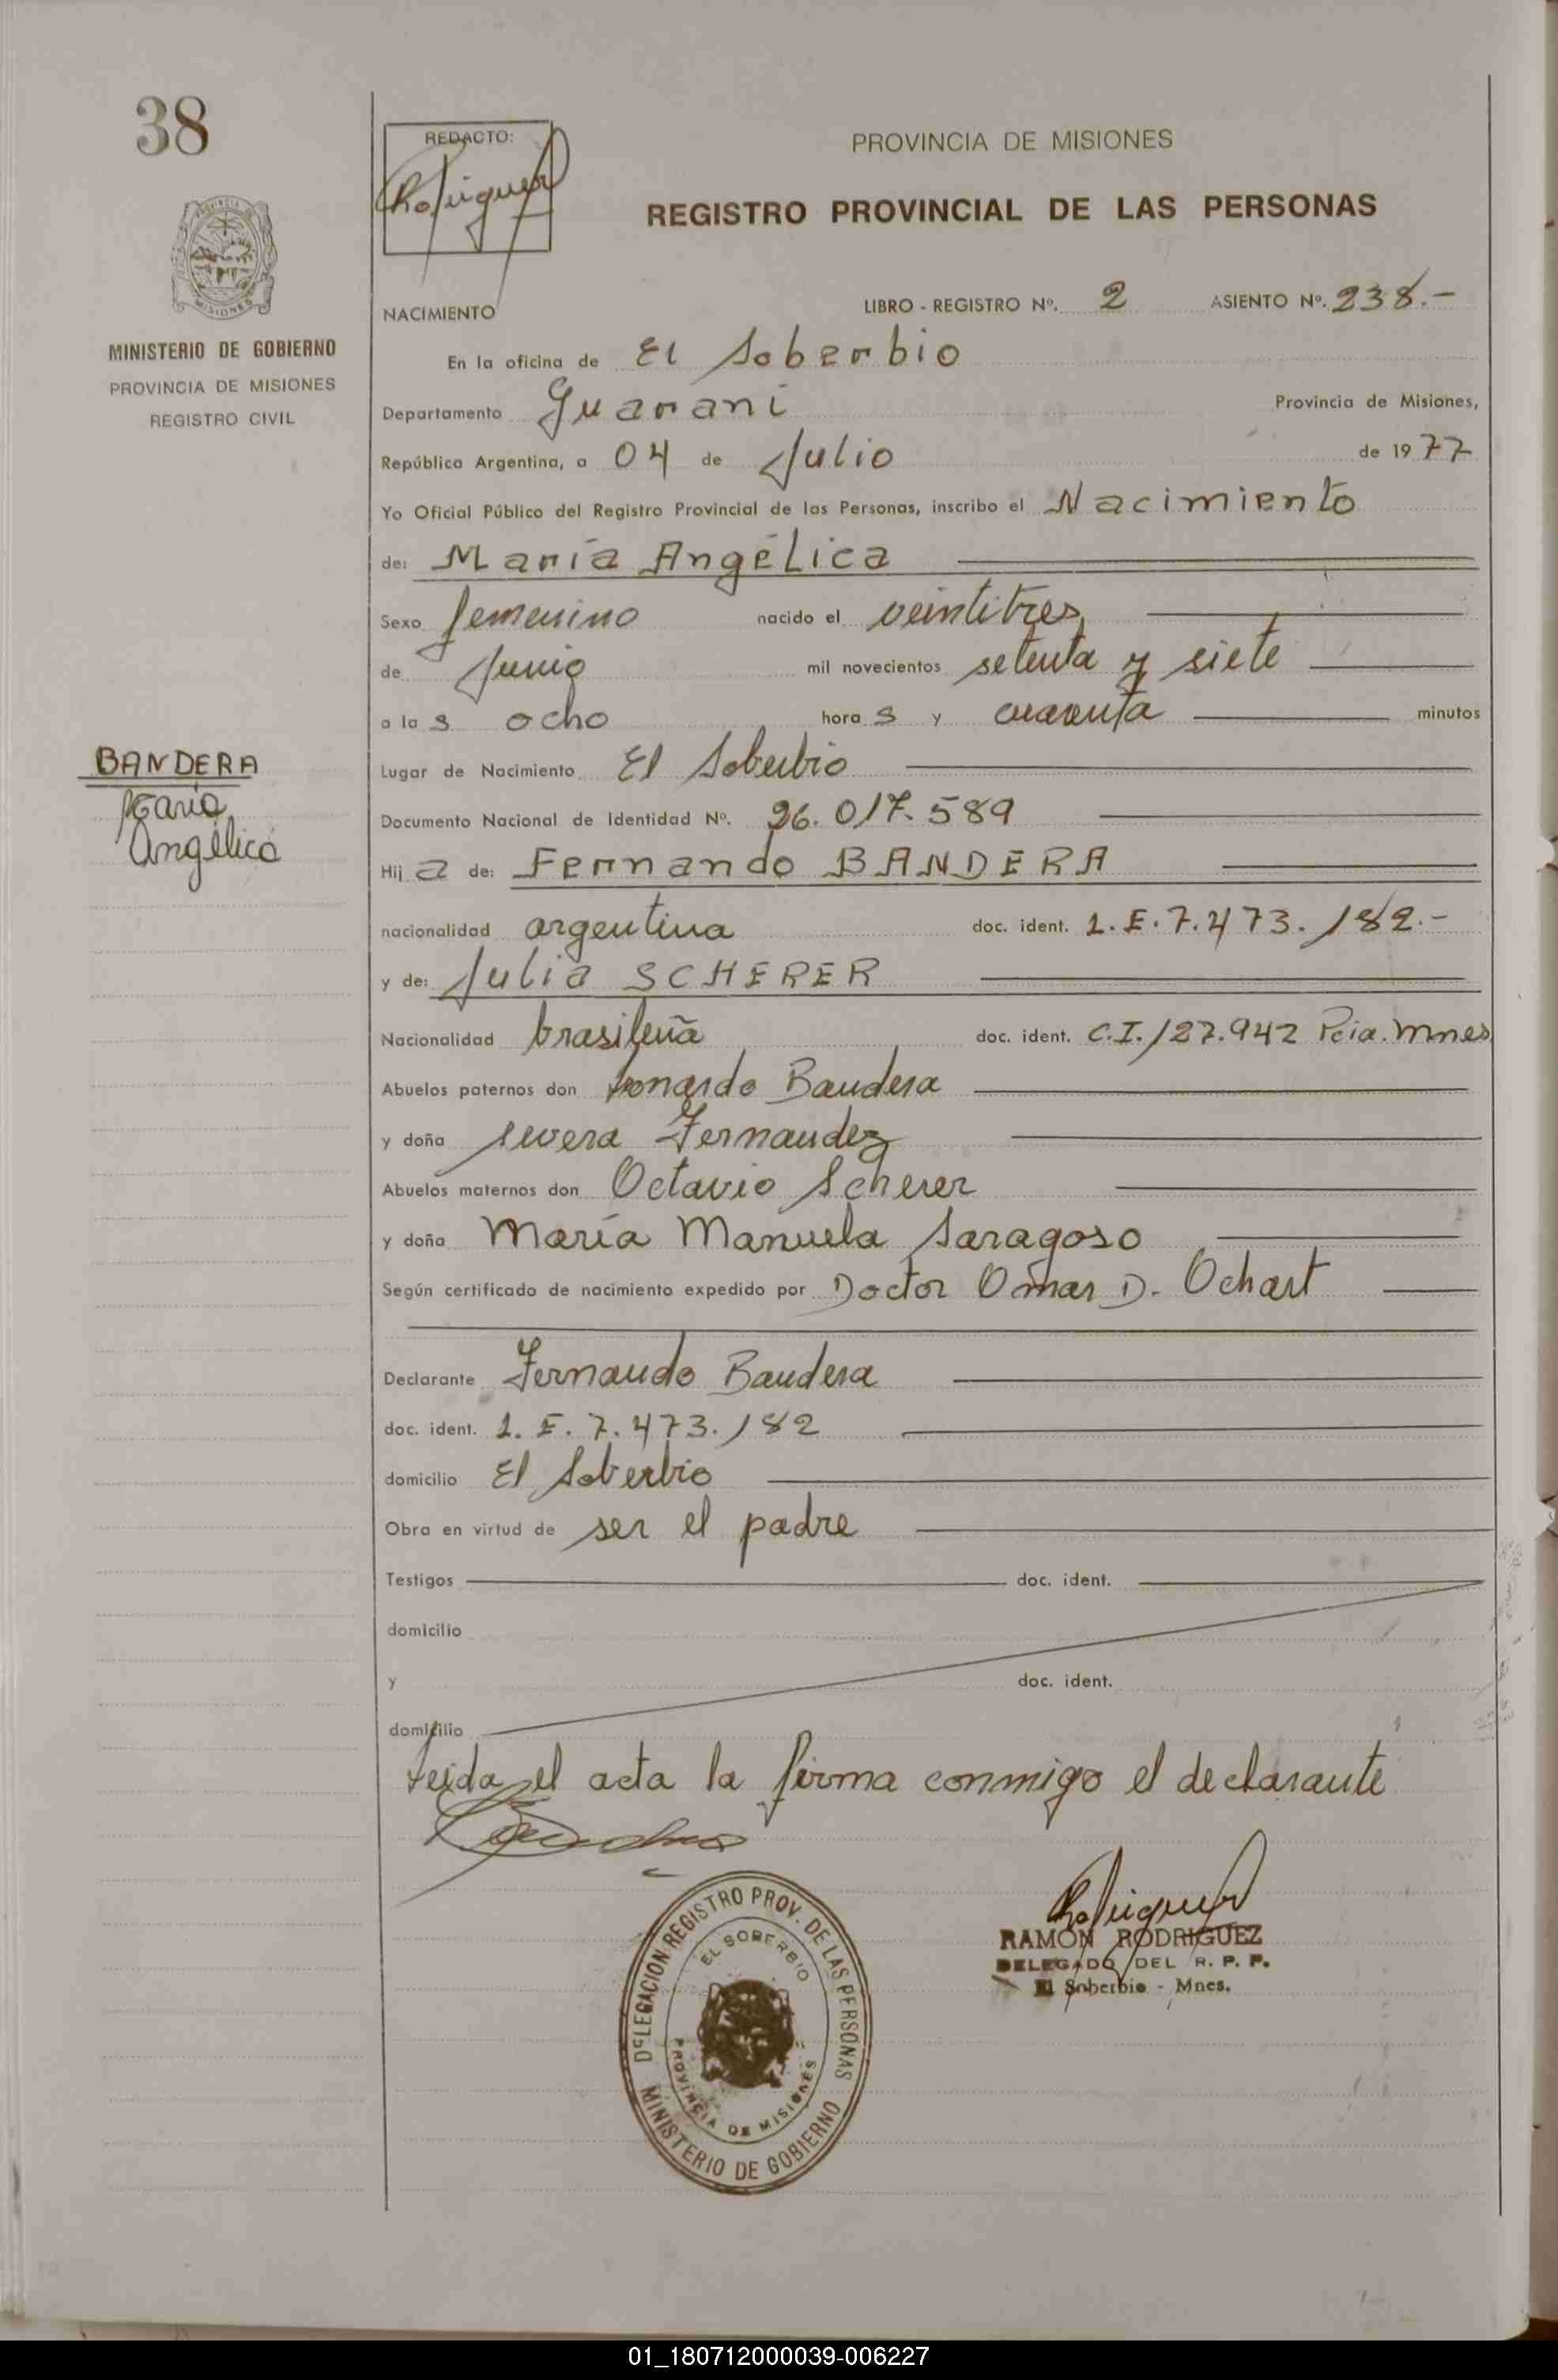 38
REDACTO:
PROVINCIA DE MISIONES
REGISTRO PROVINCIAL DE LAS PERSONAS
MISIONES
MINISTERIO DE GOBIERNO
PROVINCIA DE MISIONES
REGISTRO CIVIL
NACIMIENTO
LIBRO - REGISTRO Nº. 2 ASIENTO Nº. 238.-
En la oficina de El Soberbio
Departamento Guaraní Provincia de Misiones,
República Argentina, a 04 de Julio de 1977
Yo Oficial Público del Registro Provincial de las Personas, inscribo el Nacimiento
de: María Angélica
Sexo femenino nacido el veintitres
de Junio mil novecientos setenta y siete
a las ocho horas y cuarenta minutos
Lugar de Nacimiento El Soberbio
Documento Nacional de Identidad Nº. 26.017.589
Hija de: Fernando BANDERA
nacionalidad argentina doc. ident. L.E.7.473.182.-
y de: Julia SCHERER
Nacionalidad brasileña doc. ident. C.I.127.942 Pcia. Mnes
Abuelos paternos don Bandera
y doña Severa Fernandez
Abuelos maternos don Octavio Scherer
y doña María Manuela Saragoso
Según certificado de nacimiento expedido por Doctor Omar D. Ochart
Declarante Fernando Bandera
doc. ident. L.E.7.473.182
domicilio El Soberbio
Obra en virtud de ser el padre
Testigos doc. ident.
domicilio
y doc. ident.
domicilio
Leida el acta la firma conmigo el declarante
BANDERA
María
Angélica
DELEGACION REGISTRO PROV. DE LAS PERSONAS
EL SOBERBIO
PROVINCIA DE MISIONES
MINISTERIO DE GOBIERNO
RAMÓN RODRIGUEZ
DELEGADO DEL R. P. P.
El Soberbio - Mnes.
01_180712000039-006227